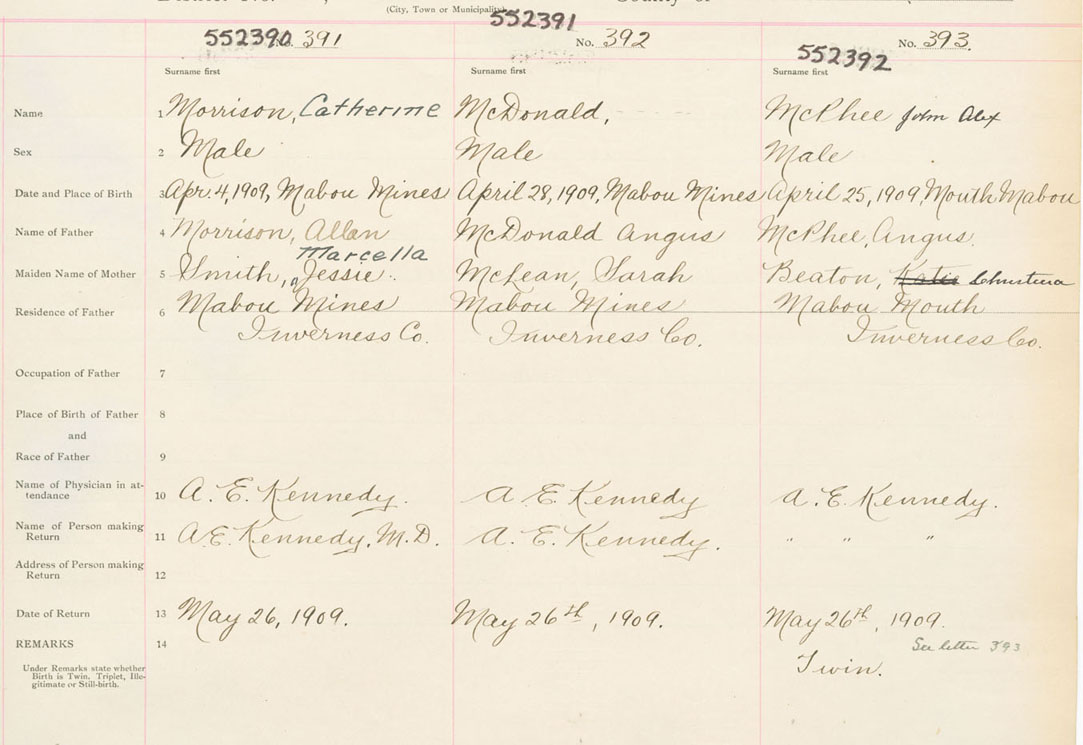 (City, Town or Municipality)
552390 No. 391
552391 No. 392
552392 No. 393.
Surname first Surname first Surname first
Name 1 Morrison, Catherine McDonald, McPhee John Alex
Sex 2 Male Male Male
Date and Place of Birth 3 Apr. 4, 1909, Mabou Mines April 28, 1909, Mabou Mines April 25, 1909, Mouth Mabou
Name of Father 4 Morrison, Allan McDonald Angus McPhee, Angus.
Marcella
Maiden Name of Mother 5 Smith, Jessie. McLean, Sarah Beaton, Katie Christina
Residence of Father 6 Mabou Mines Mabou Mines Mabou Mouth
Inverness Co. Inverness Co. Inverness Co.
Occupation of Father 7
Place of Birth of Father 8
and
Race of Father 9
Name of Physician in at-
tendance 10 A. E. Kennedy. A E. Kennedy A. E. Kennedy.
Name of Person making
Return 11 A E. Kennedy, M.D. A. E. Kennedy. " " "
Address of Person making
Return 12
Date of Return 13 May 26, 1909. May 26th, 1909. May 26th, 1909.
REMARKS 14 See letter 393
Under Remarks state whether
Birth is Twin, Triplet, Ille-
gitimate or Still-birth.
Twin.